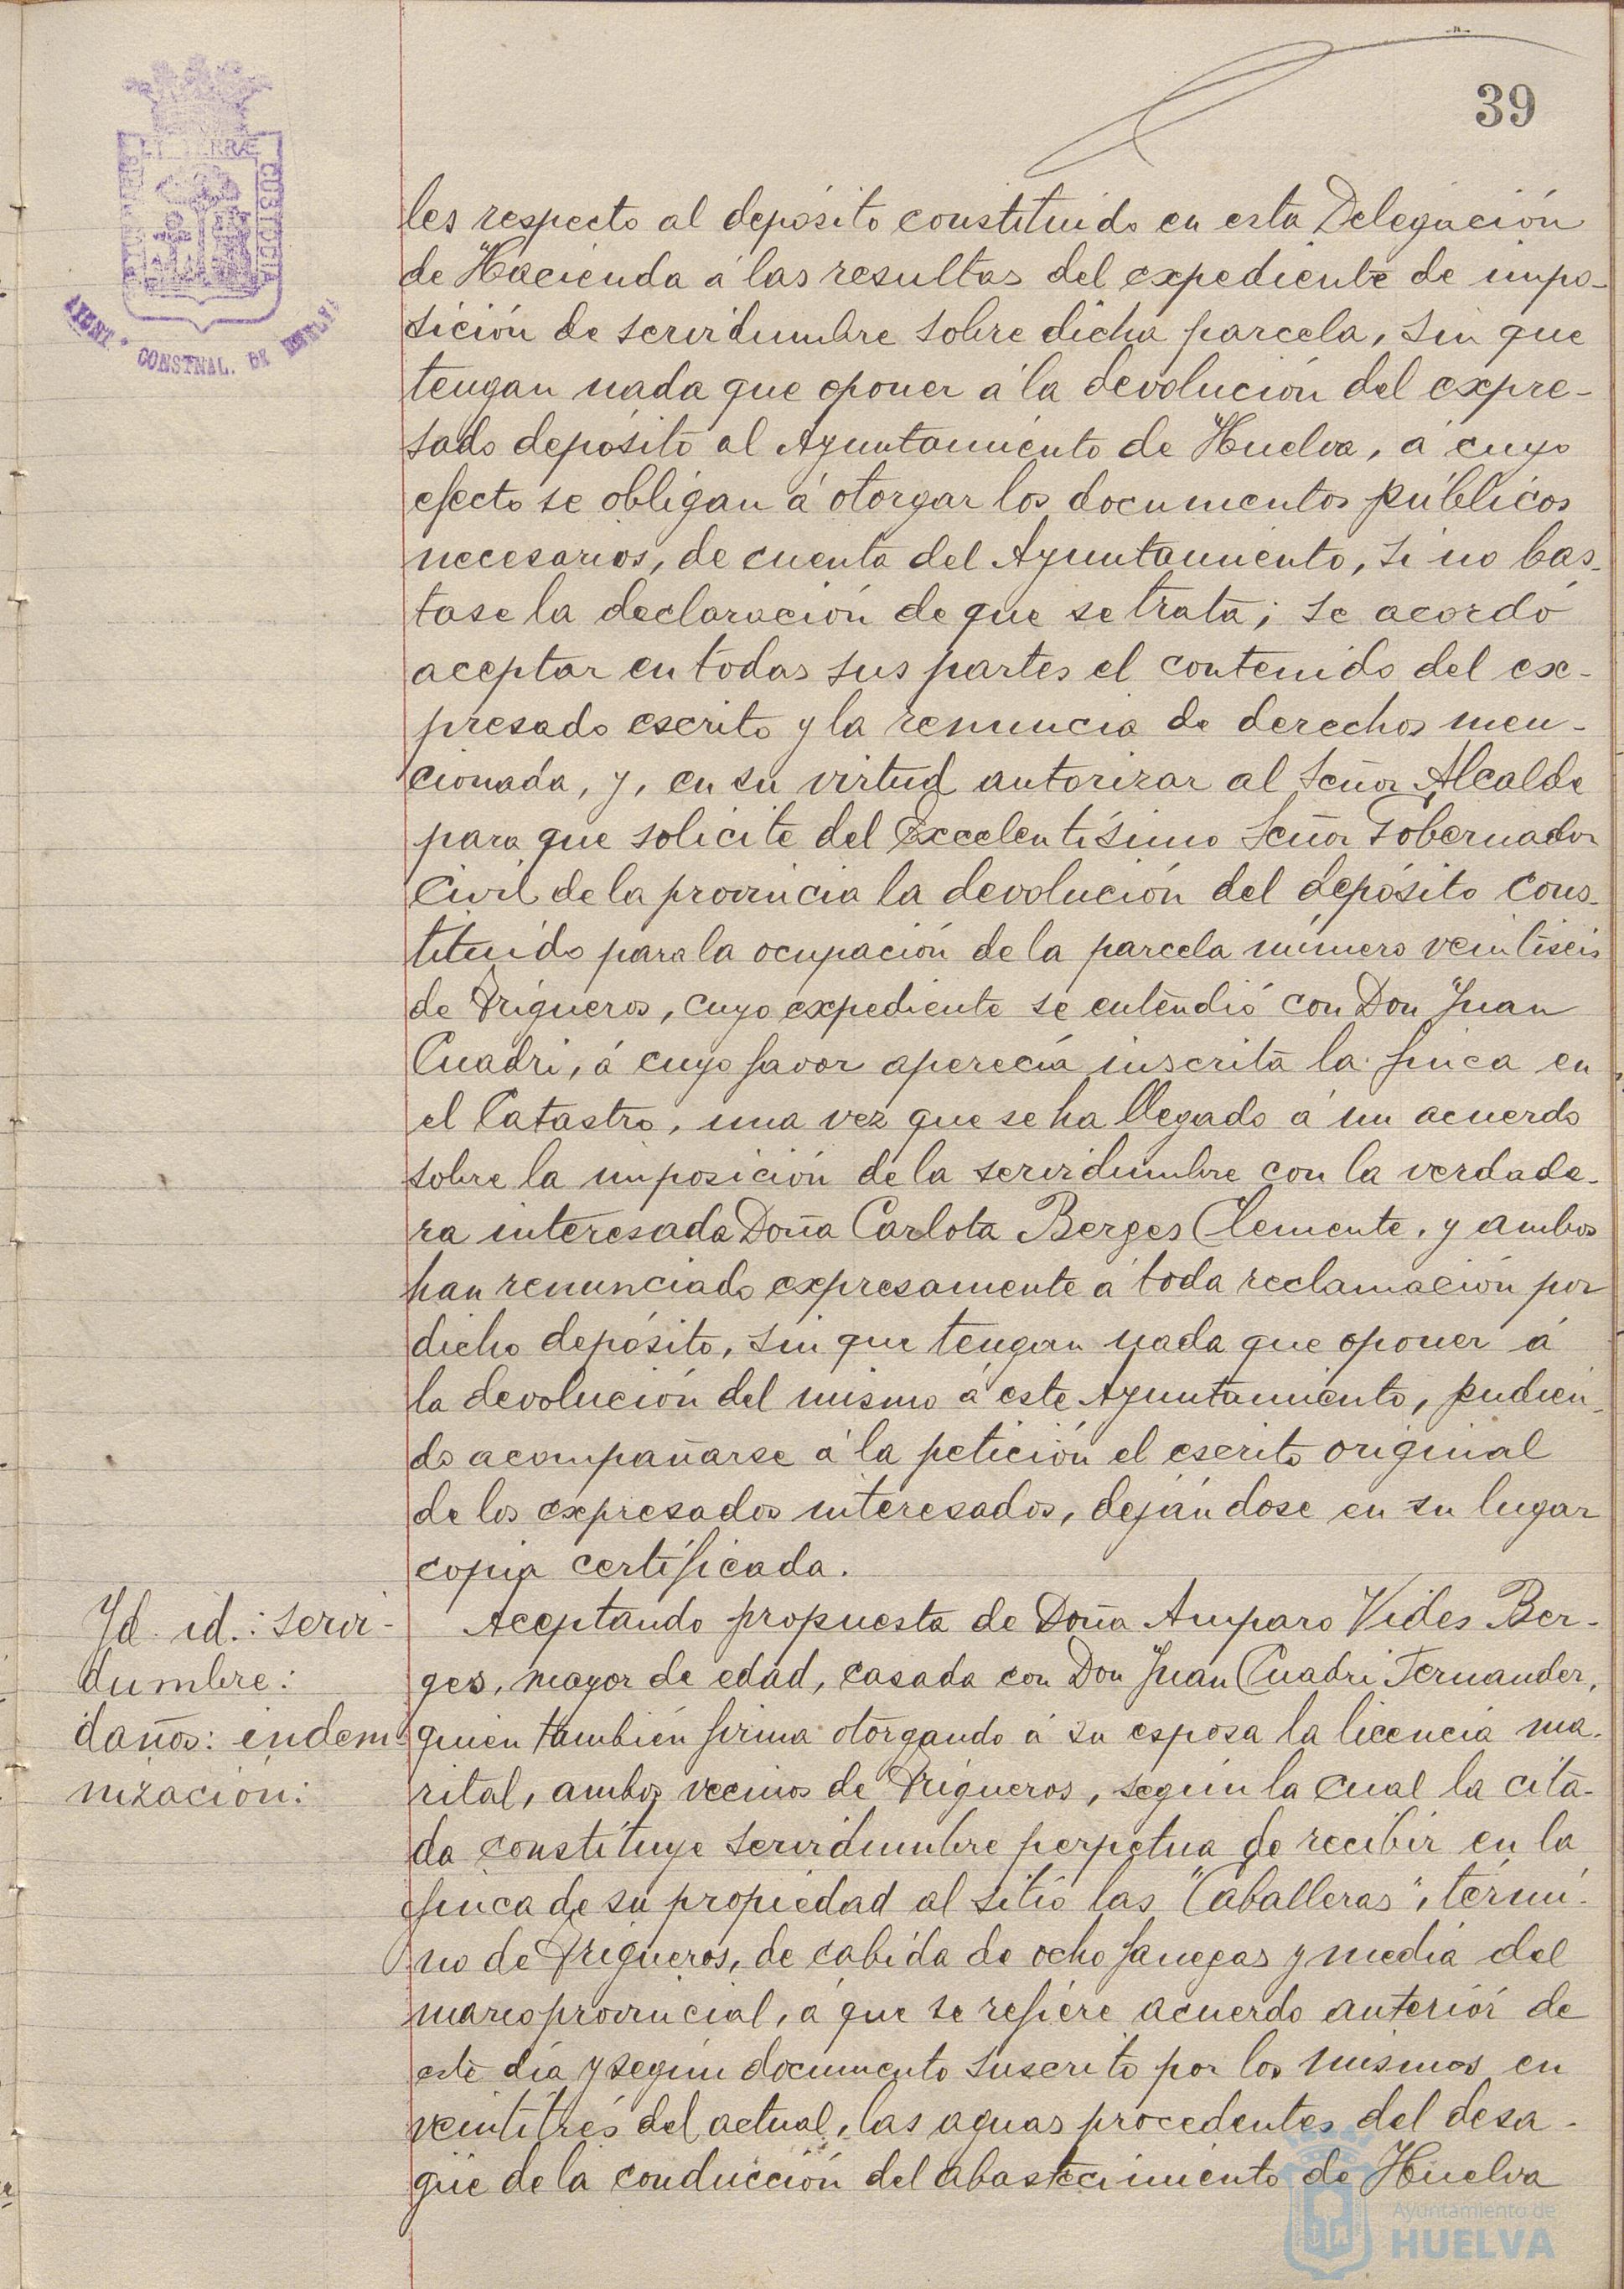 39
les respecto al depósito constituido en esta Delegación
de Hacienda á las resultas del expediente de impo-
sición de servidumbre sobre dicha parcela, sin que
tengan nada que oponer á la devolución del expre-
sado depósito al Ayuntamiento de Huelva, á cuyo
efecto se obligan á otorgar los documentos públicos
necesarios, de cuenta del Ayuntamiento, si no bas-
tase la declaración de que se trata; se acordó
aceptar en todas sus partes el contenido del ex-
presado escrito y la renuncia de derechos men-
cionada, y, en su virtud autorizar al Señor Alcalde
para que solicite del Excelentísimo Señor Gobernador
Civil de la provincia la devolución del depósito cons-
tituido para la ocupación de la parcela número veintiseis
de Trigueros, cuyo expediente se entendió con Don Juan
Cuadri, á cuyo favor aparecía inscrita la finca en
el Catastro, una vez que se ha llegado á un acuerdo
sobre la imposición de la servidumbre con la verdade-
ra interesada Doña Carlota Berges Clemente, y ambos
han renunciado expresamente á toda reclamación por
dicho depósito, sin que tengan nada que oponer á
la devolución del mismo á este Ayuntamiento, pudien-
do acompañarse á la petición el escrito original
de los expresados interesados, dejándose en su lugar
copia certificada.
Id. id.: servi-
dumbre:
daños: indem-
nización:
Aceptando propuesta de Doña Amparo Vides Ber-
ges, mayor de edad, casada con Don Juan Cuadri Fernandez,
quien también firma otorgando á su esposa la licencia ma-
rital, ambos vecinos de Trigueros, según la cual la cita-
da constituye servidumbre perpetua de recibir en la
finca de su propiedad al sitio las "Caballeras", térmi-
no de Trigueros, de cabida de ocho fanegas y media del
marco provincial, á que se refiere acuerdo anterior de
este día y según documento suscrito por los mismos en
veintitrés del actual, las aguas procedentes del desa-
güe de la conducción del abastecimiento de Huelva
ET TERRÆ
CUSTODIA
AYUNTº CONSTNAL. DE HUELVA
Ayuntamiento de
HUELVA